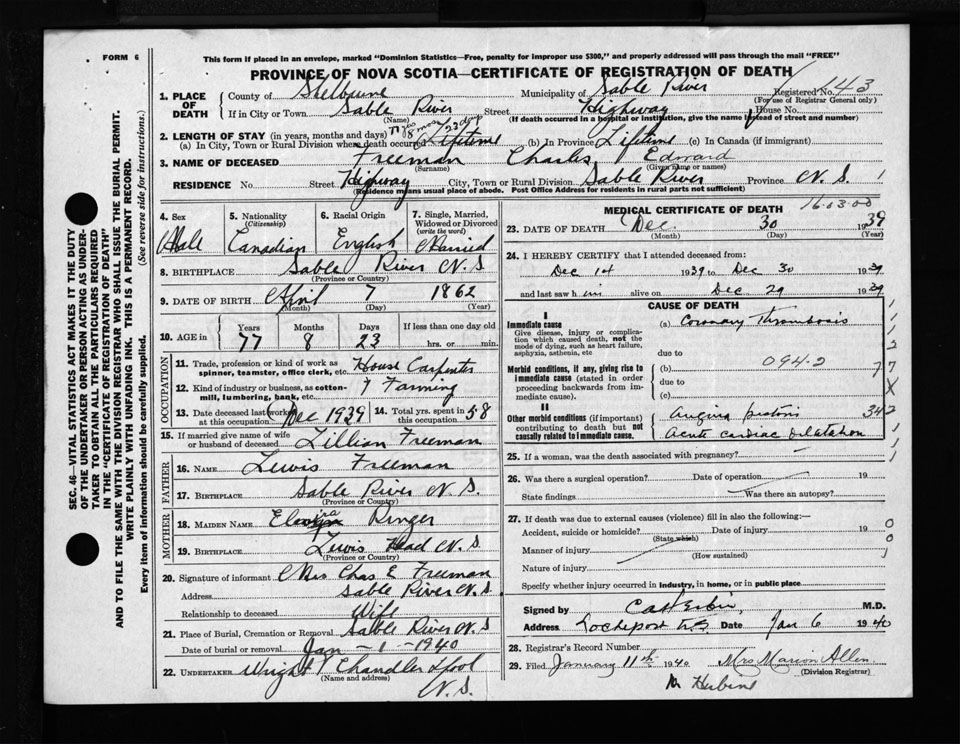 FORM 6
This form if placed in an envelope, marked "Dominion Statistics—Free, penalty for improper use $300," and properly addressed will pass through the mail "FREE"
PROVINCE OF NOVA SCOTIA—CERTIFICATE OF REGISTRATION OF DEATH
SEC. 46—VITAL STATISTICS ACT MAKES IT THE DUTY
OF THE UNDERTAKER OR PERSON ACTING AS UNDER-
TAKER TO OBTAIN ALL THE PARTICULARS REQUIRED
IN THE "CERTIFICATE OF REGISTRATION OF DEATH"
AND TO FILE THE SAME WITH THE DIVISION REGISTRAR WHO SHALL ISSUE THE BURIAL PERMIT.
WRITE PLAINLY WITH UNFADING INK. THIS IS A PERMANENT RECORD.
Every item of information should be carefully supplied. (See reverse side for instructions.)
1. PLACE OF DEATH County of Shelburne Municipality of Sable River Registered No. 143
(For use of Registrar General only)
If in City or Town Sable River Street Highway House No.
(Name) (If death occurred in a hospital or institution, give the name instead of street and number)
2. LENGTH OF STAY (in years, months and days) 77 yrs 8 mos 23 dys
(a) In City, Town or Rural Division where death occurred Lifetime (b) In Province Lifetime (c) In Canada (if immigrant)
3. NAME OF DECEASED Freeman Charles Edward
(Surname) (Given name or names)
RESIDENCE No. Street Highway City, Town or Rural Division Sable River Province N.S.
(Residence means usual place of abode. Post Office Address for residents in rural parts not sufficient)
4. Sex Male
5. Nationality (Citizenship) Canadian
6. Racial Origin English
7. Single, Married, Widowed or Divorced (write the word) Married
8. BIRTHPLACE Sable River N.S
(Province or Country)
9. DATE OF BIRTH April 7 1862
(Month) (Day) (Year)
10. AGE in Years 77 Months 8 Days 23 If less than one day old hrs. or min.
OCCUPATION
11. Trade, profession or kind of work as spinner, teamster, office clerk, etc. House Carpenter
12. Kind of industry or business, as cotton-mill, lumbering, bank, etc. & Farming
13. Date deceased last worked at this occupation Dec 1939 14. Total yrs. spent in this occupation 58
15. If married give name of wife or husband of deceased Lillian Freeman
FATHER
16. NAME Lewis Freeman
17. BIRTHPLACE Sable River N.S.
(Province or Country)
MOTHER
18. MAIDEN NAME Ringer
19. BIRTHPLACE Lewis Head N.S
(Province or Country)
20. Signature of informant Mrs Chas E Freeman
Address Sable River N.S
Relationship to deceased Wife
21. Place of Burial, Cremation or Removal Sable River N.S
Date of burial or removal Jan - 1 - 1940
22. UNDERTAKER Wright & Chandler Lpool
(Name and address) N.S.
MEDICAL CERTIFICATE OF DEATH 16-03-00
23. DATE OF DEATH Dec. 30 1939
(Month) (Day) (Year)
24. I HEREBY CERTIFY that I attended deceased from:
Dec 14 1939 to Dec 30 1939
and last saw him alive on Dec 29 1939
CAUSE OF DEATH
I
Immediate cause
Give disease, injury or complication which caused death, not the mode of dying, such as heart failure, asphyxia, asthenia, etc
(a) Coronary Thrombosis
due to
Morbid conditions, if any, giving rise to immediate cause (stated in order proceeding backwards from immediate cause).
(b) 094-2
due to
(c)
II
Other morbid conditions (if important) contributing to death but not causally related to immediate cause.
Angina pectoris 342
Acute cardiac Dilatation
25. If a woman, was the death associated with pregnancy?
26. Was there a surgical operation? Date of operation 19
State findings Was there an autopsy?
27. If death was due to external causes (violence) fill in also the following:—
Accident, suicide or homicide? Date of injury 19
(State which)
Manner of injury
(How sustained)
Nature of injury
Specify whether injury occurred in industry, in home, or in public place
Signed by M.D.
Address Lockeport N.S. Date Jan 6 1940
28. Registrar's Record Number
29. Filed January 11th 1940 Mrs Marion Allen
(Division Registrar)